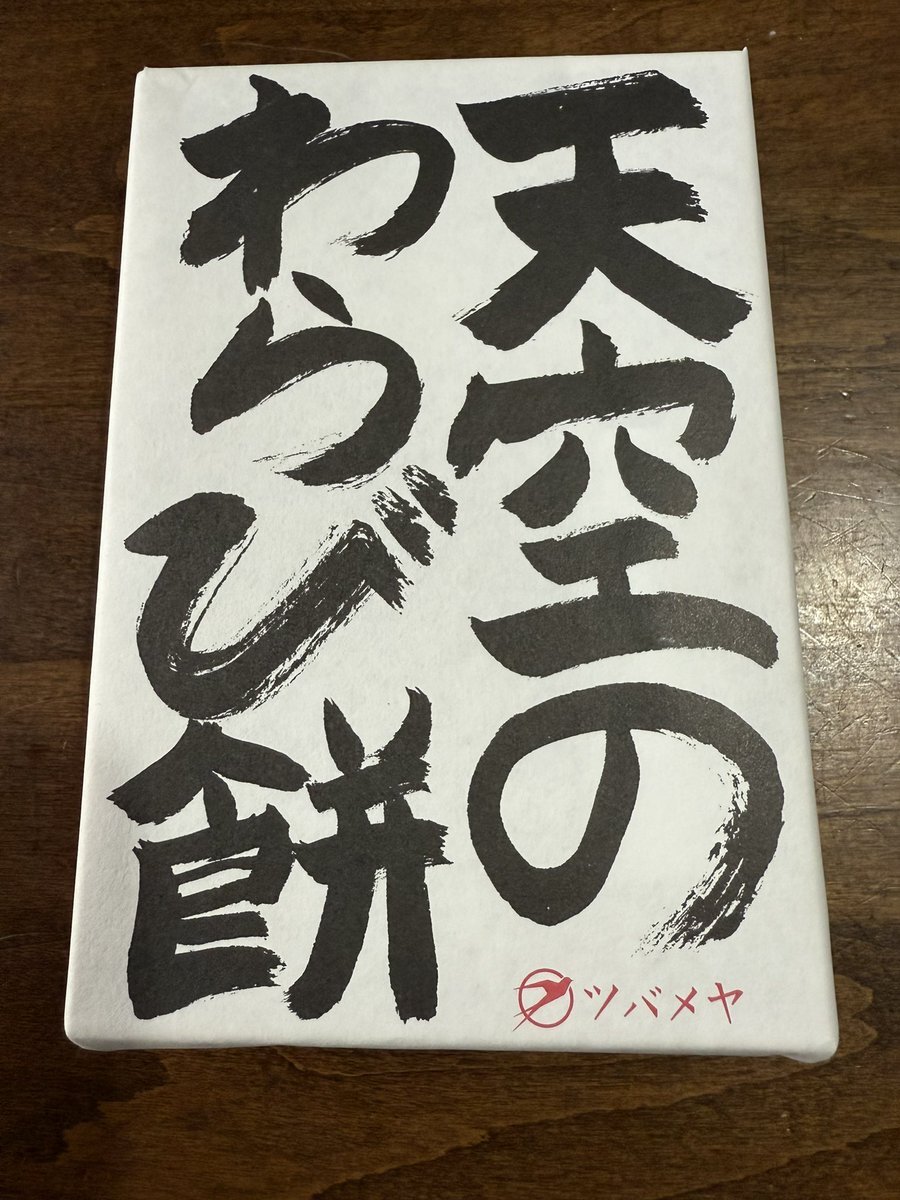 天空の
わらび餅
ツバメヤ